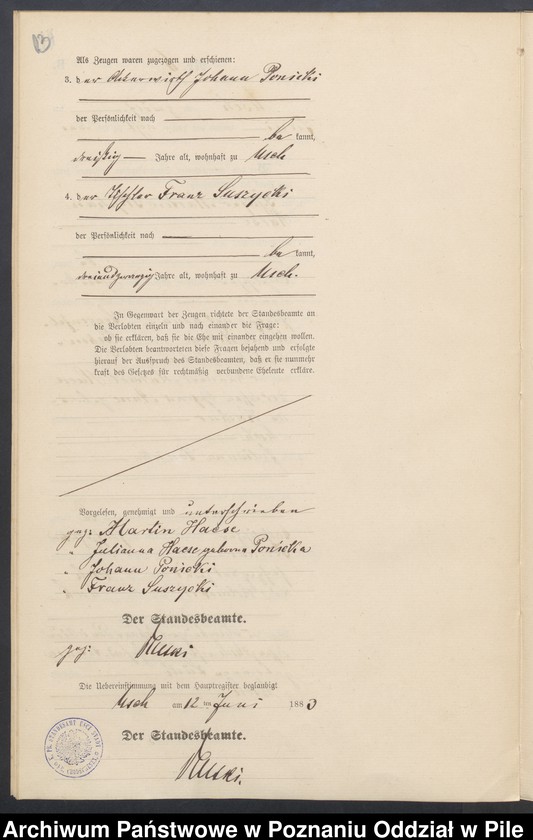 13
Als Zeugen waren zugezogen und erschienen:
3. der Ackerwirth Johann Poniecki
der Persönlichkeit nach
be kannt,
dreißig Jahre alt, wohnhaft zu Usch
4. der Tischler Franz Suszycki
der Persönlichkeit nach
be kannt,
dreiundzwanzig Jahre alt, wohnhaft zu Usch.
In Gegenwart der Zeugen richtete der Standesbeamte an
die Verlobten einzeln und nach einander die Frage:
ob sie erklären, daß sie die Ehe mit einander eingehen wollen.
Die Verlobten beantworteten diese Fragen bejahend und erfolgte
hierauf der Ausspruch des Standesbeamten, daß er sie nunmehr
kraft des Gesetzes für rechtmäßig verbundene Eheleute erkläre.
Vorgelesen, genehmigt und unterschrieben
gez: Martin Haese
" Julianna Haese geborne Poniecka
" Johann Poniecki
" Franz Suszycki
Der Standesbeamte.
gez:
Die Uebereinstimmung mit dem Hauptregister beglaubigt
Usch am 12 ten Juni 1883
Der Standesbeamte.
Archiwum Państwowe w Poznaniu Oddział w Pile